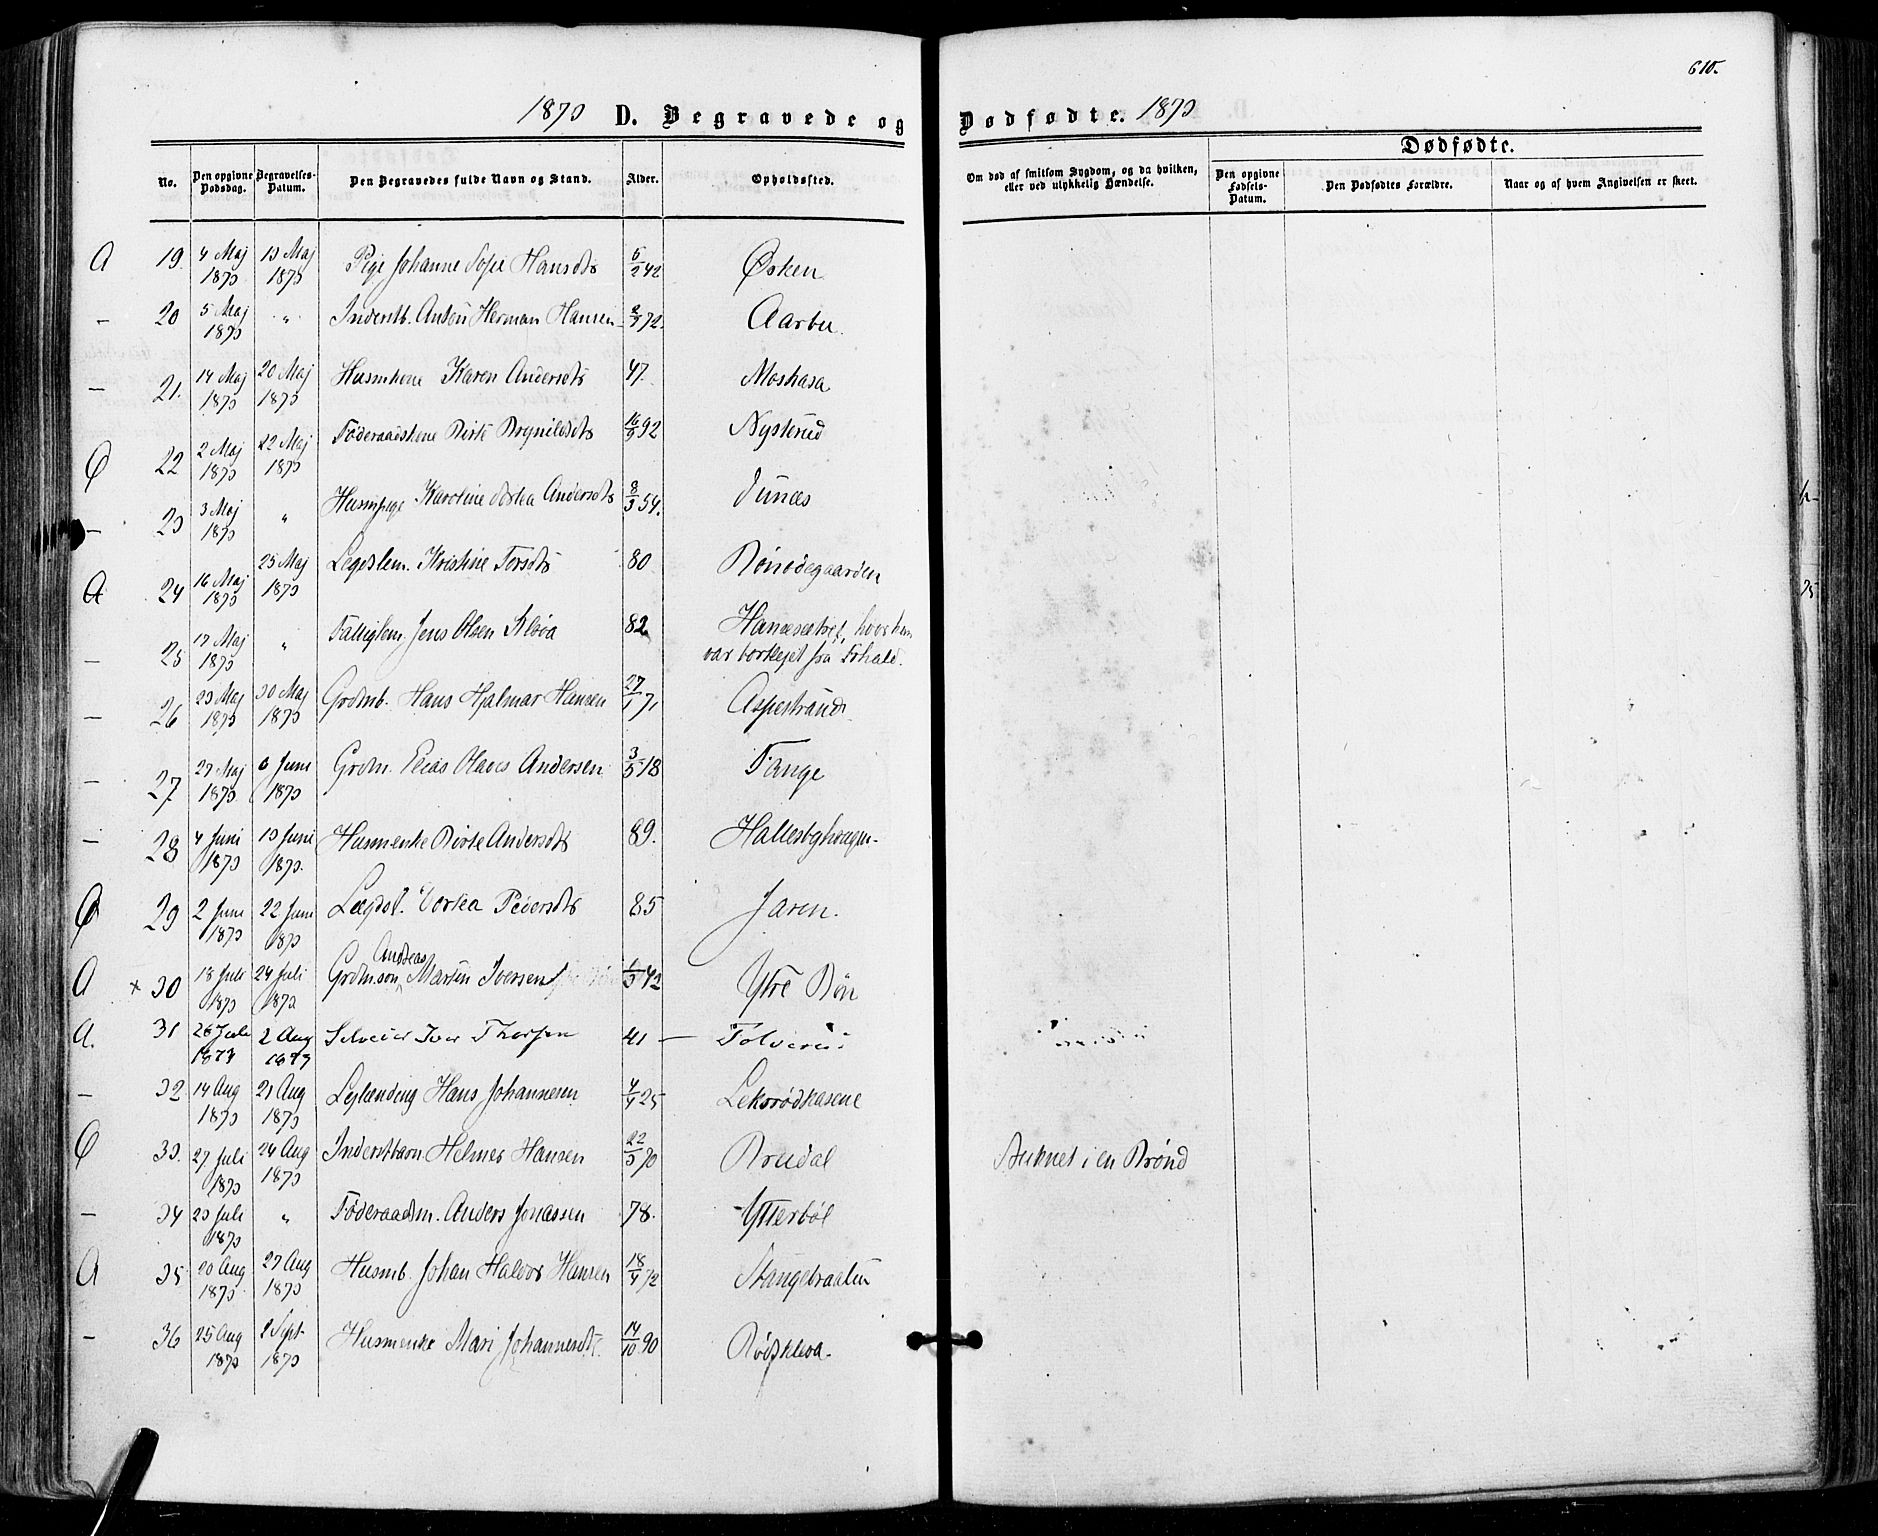 610.
1873 D. Begravede og Dødfødte. 1873
No.
Den opgivne Dødsdag.
Begravelses-Datum.
Den Begravedes fulde Navn og Stand.
Alder.
Opholdssted.
Om død af smitsom Sygdom, og da hvilken, eller ved ulykkelig Hændelse.
Dødfødte.
Den opgivne Fødsels-Datum.
Den Dødfødtes Forældre.
Naar og af hvem Angivelsen er skeet.
A 19. 4 Maj 1873 13 Maj 1873 Pige Johanne Sofie Hansdtr 6/2 42 Øsken
— 20 5 Maj 1873 " Inderstb. Anton Herman Hansen 72. Aarbu.
— 21. 14 Maj 1873 20 Maj 1873 Husmkone Karen Andersdtr 47. Moskasa
Ø 22 2 Maj 1873 22 Maj 1873 Föderaadskone Birte Brynildsdtr 16/9 92 Nysterud
— 23 3 Maj 1873 " Husmpige Karoline Dortea Andersdtr 8/3 54.
A 24 16 Maj 1873 25 Maj 1873 Legdslem. Kristine Torsdtr 80 Rönödegaarden
— 25 17 Maj 1873 " Fattiglem. Jens Olsen Kleva 82 hvorhen
var bortsejet fra Frhald.
— 26 23 Maj 1873 30 Maj 1873 Grdmb. Hans Hjalmar Hansen 27/1 71 Aspestrand.
— 27 27 Maj 1873 6 Juni 1873 Grdm. Elias Olaves Andersen 3/5 18 Tange
— 28 4 Juni 1873 13 Juni 1873. Husmenke Birte Andersdtr 89. Hallesbyhougen.
Ø 29 2 Juni 1873 22 Juni 1873 Lægdsl. Dortea Pedersdtr 85 Jaren.
Andreas
A × 30 18 Juli 1873 24 Juli 1873 Grdmson Martin Iversen 1/3 42 Ytre Bön
A. 31 26 Juli 1873 2 Aug 1873 Selveier Iver Thorsen 41 — Tolverud
— 32 14 Aug 1873 21 Aug 1873 Lejlending Hans Johannesen 4/4 25 Leksrödkasene
Ø 33. 27 Juli 1873 24 Aug 1873 Inderstbarn Helmer Hansen 22/3 70 Bredal Druknet i en Brønd
— 34 23 Juli 1873 " Föderaadsm. Anders Jonassen 78. Ytterböl
A 35 20 Aug 1873 27 Aug 1873 Husmb. Johan Halvor Hansen 18/4 72 Stangebraaten
— 36 25 Aug 1873 2 Sept 1873 Husmenke Mari Johannesdtr. 14/10 90 Rödskleva.